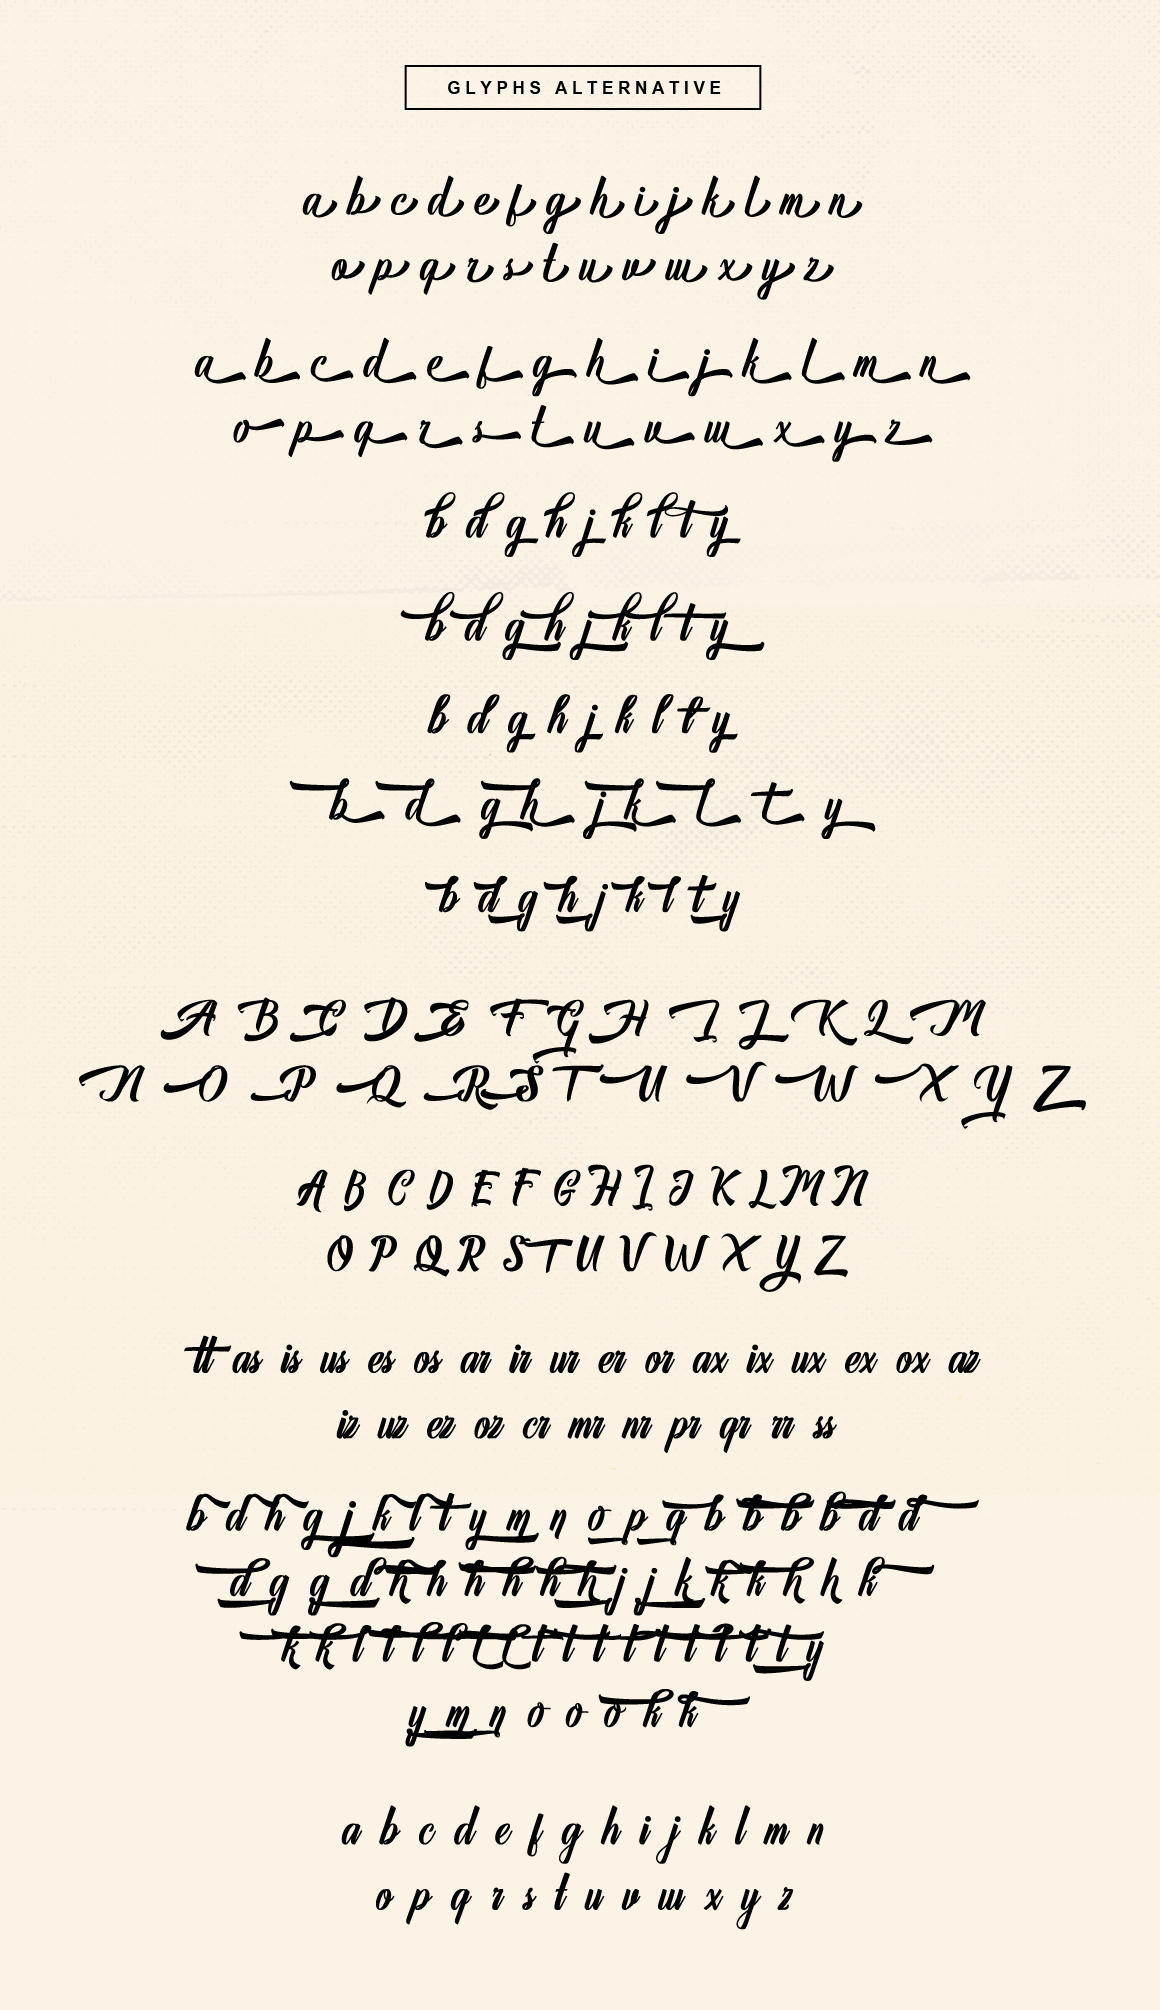 GLYPHS ALTERNATIVE
a b c d e f g h i j k l m n
o p q r s t u v w x y z
a b c d e f g h i j k l m n
o p q r s t u v w x y z
b d g h j k l t y
b d g h j k l t y
b d g h j k l t y
b d g h j k l t y
b d g h j k l t y
A B C D E F G H I J K L M
N O P Q R S T U V W X Y Z
A B C D E F G H I J K L M N
O P Q R S T U V W X Y Z
tt as is us es os ar ir ur er or ax ix ux ex ox az
iz uz ez oz cr mr nr pr qr rr ss
b d h g j k l t y m n o p q b b b b d d
d g g d h h h h h h j j k k k h h k
y m n o o o k k
a b c d e f g h i j k l m n
o p q r s t u v w x y z